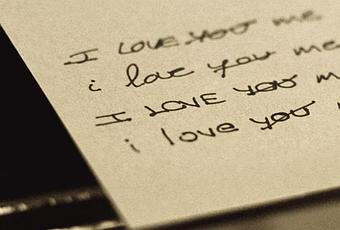 I LOVE you me
i love you me
I LOVE you m
i love you